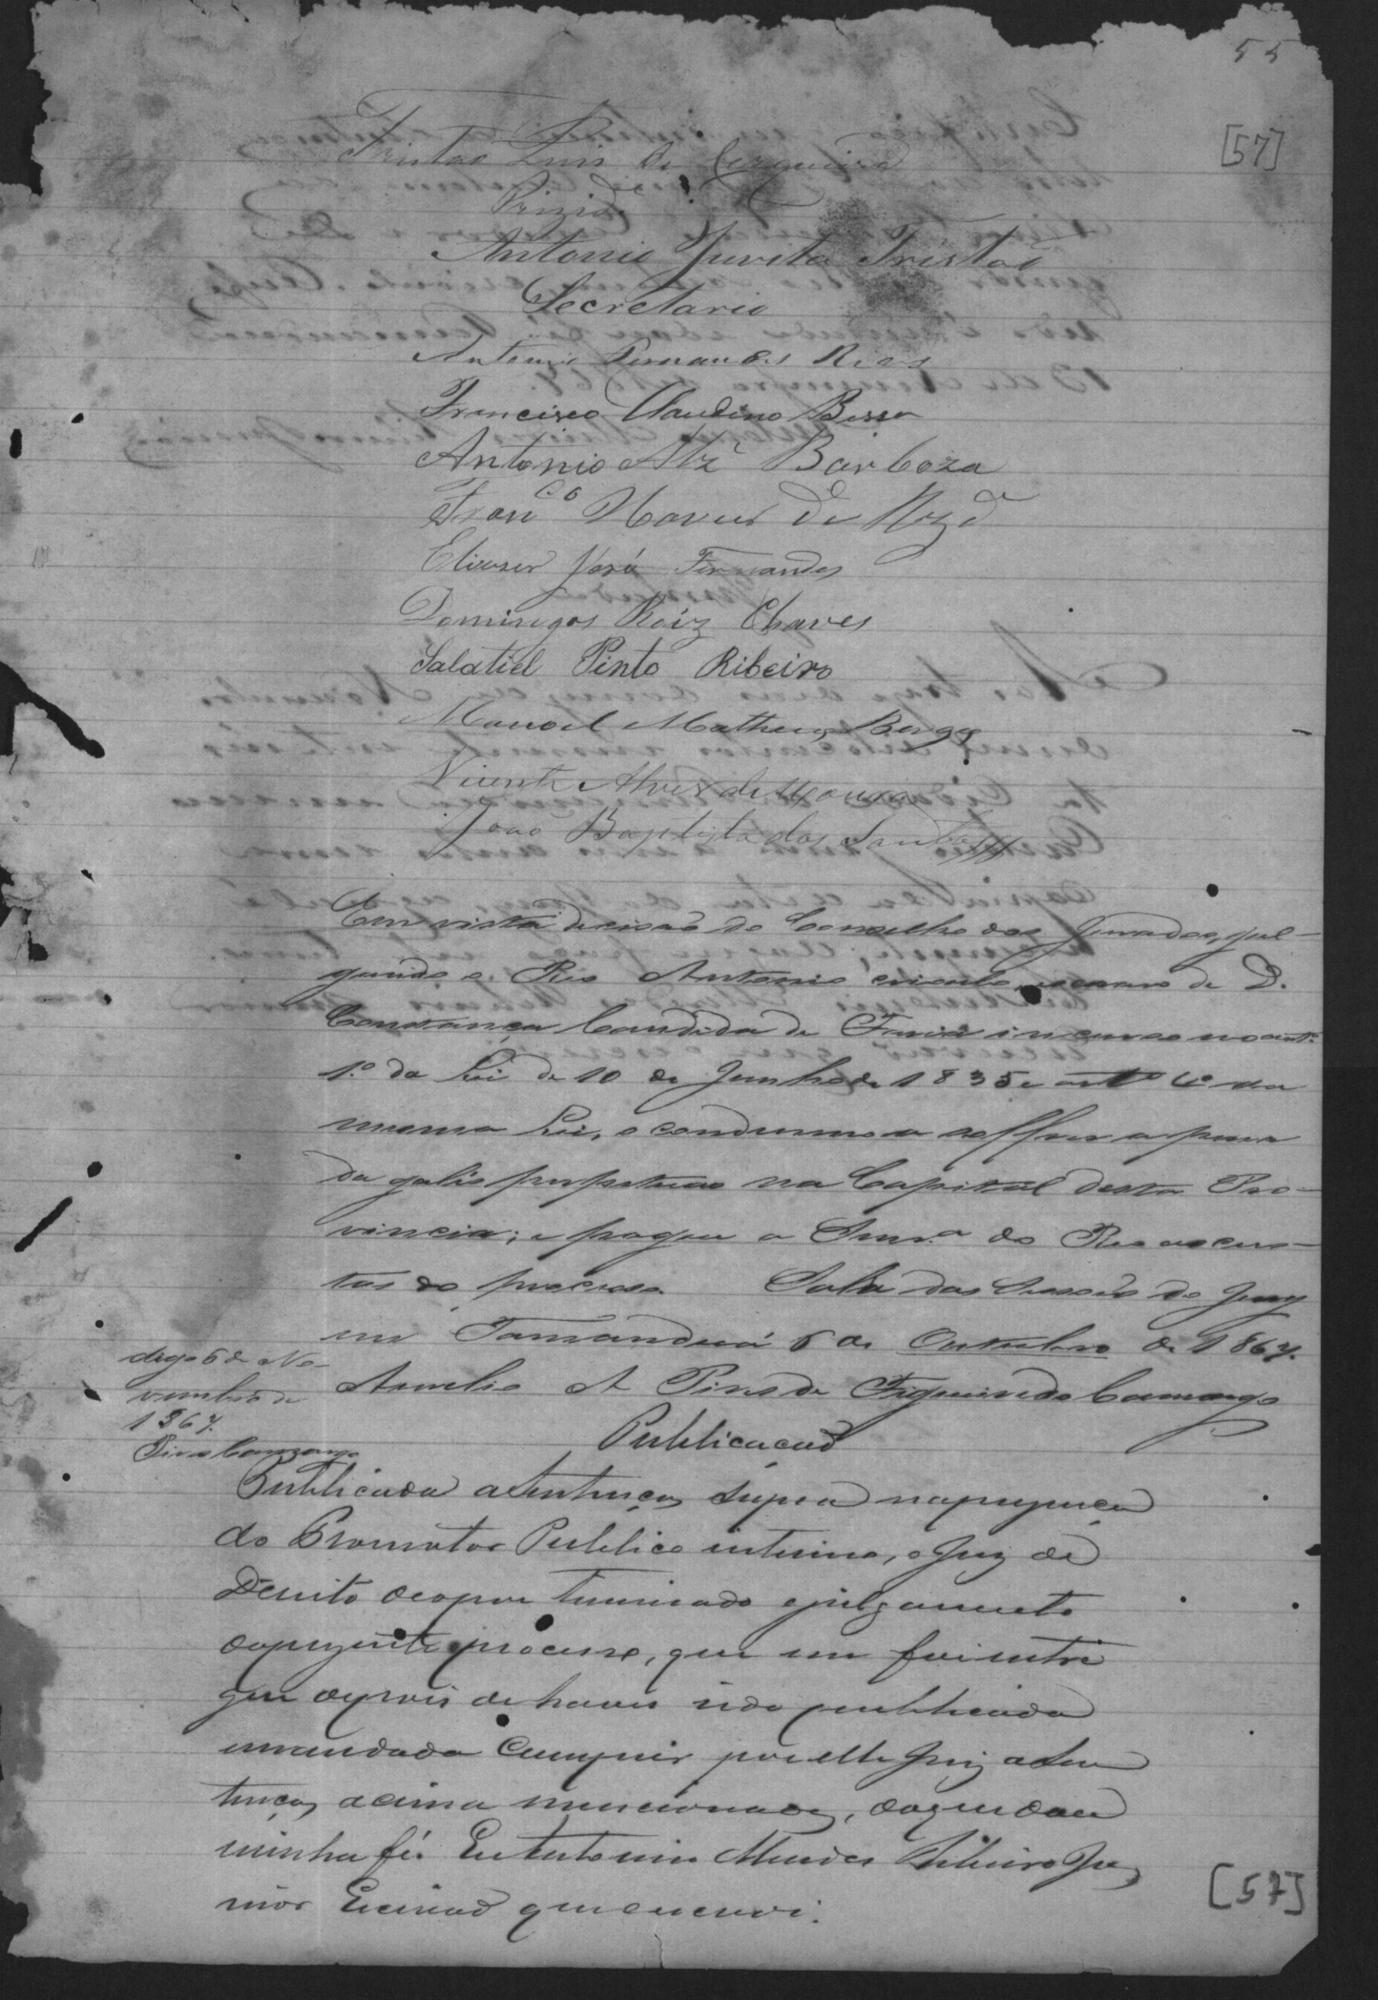 55
[57]
Tristão Luis de Cerqueira
Prizid.e
Antonio Jurita Tristaõ
Secretario
Antonio Fernandes Rios
Francisco Claudino Bessa
Antonio Alz' Barboza
Fran.co Xavier de
Elieser José Fernandes
Domingos Roiz Chaves
Salatiel Pinto Ribeiro
Manoel Matheus Borges
Vicente Alves de Moura
Joao Baptista dos Santos
Em vista decisaõ do Conselho dos Jurados, jul-
gando o Reo Antonio crioulo, escravo de D.
Constança Candida de Faria incurso no art.
1.º da Lei de 10 de Junho de 1835 e art.º 4º da
mesma Lei, o condemno a soffrer a pena
de galés perpetuas na Capital desta Pro-
vincia; e pague a Snr.a do Reo as cus-
tas do processo. Sala das Sessoẽs do Jury
em Tamanduá 6 de Outubro de 1867.
digo 6 de No-
vembro de
1867.
Pires Camargo
Aurelio A Pires de Figueiredo Camargo
Publicacaõ
Publicada a sentença supra na prezença
do Promotor Publico interino, o Juiz de
Dereito deo por terminado o julgamento
do prezente processo, que me foi entre
gue depois de haver sido publicada
emandada cumprir por elle Juiz a Sen
tença, acima mencionada, do que dou
minha fé. Eu Antonio Mendes Ribeiro Ju
nior Escrivaõ que escrevi.
[57]